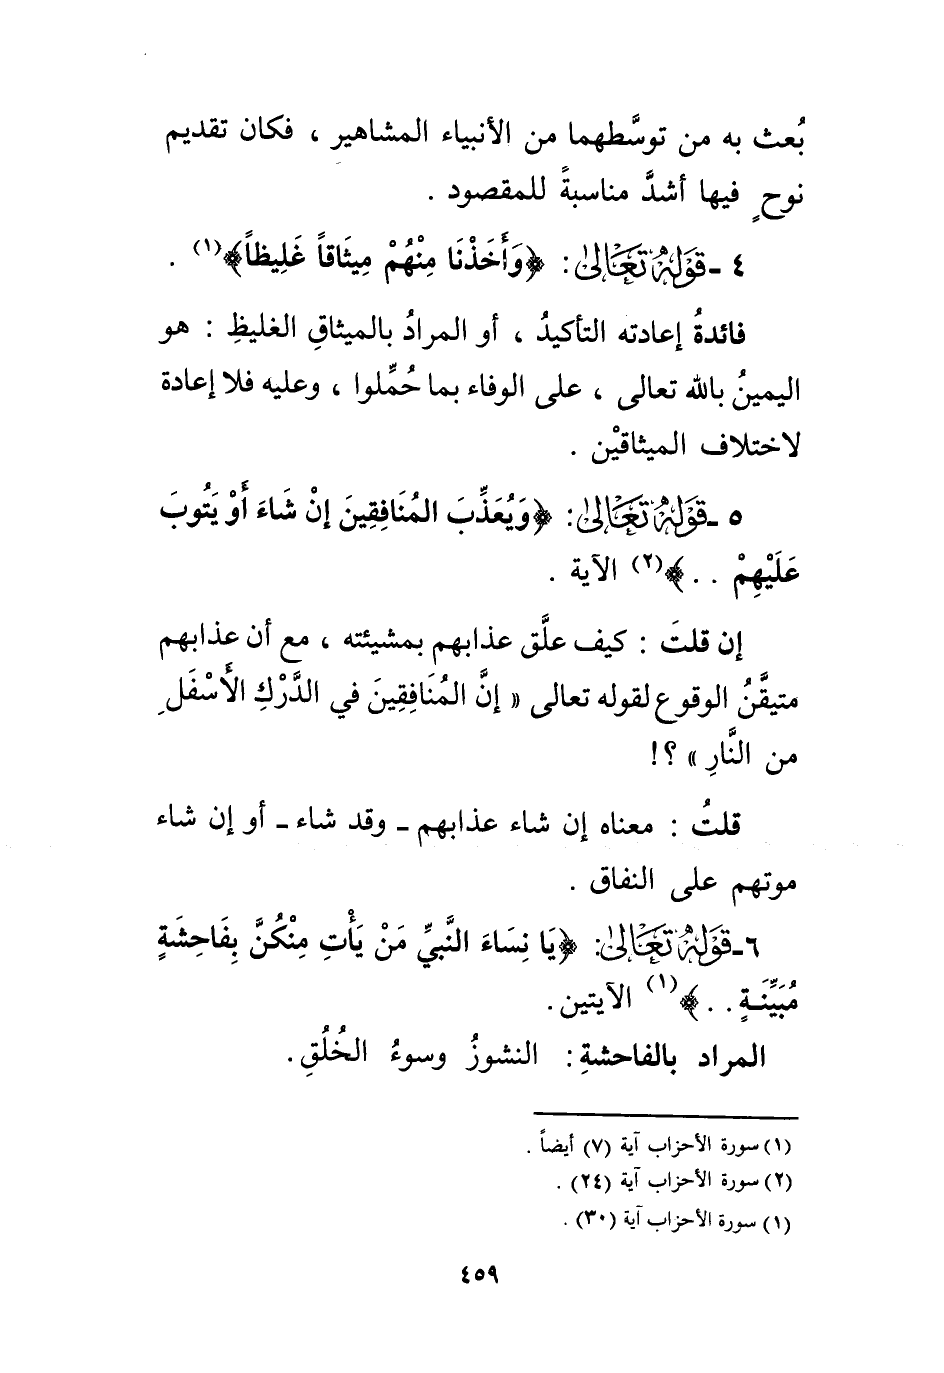 بُعث به من توسَّطهما من الأنبياء المشاهير ، فكان تقديم
نوحٍ فيها أشدَّ مناسبةً للمقصود .
٤ ـ قَوْلُهُ تَعَالَىٰ : ﴿وَأَخَذْنَا مِنْهُمْ مِيثَاقاً غَلِيظاً﴾(١) .
فائدةُ إعادته التأكيدُ ، أو المرادُ بالميثاقِ الغليظِ : هو
اليمينُ بالله تعالى ، على الوفاء بما حُمِّلوا ، وعليه فلا إعادة
لاختلاف الميثاقيْن .
٥ ـ قَوْلُهُ تَعَالَىٰ : ﴿وَيُعَذِّبَ المُنَافِقِينَ إنْ شَاءَ أَوْ يَتُوبَ
عَلَيْهِمْ . . ﴾(٢) الآية .
إن قلتَ : كيف علَّق عذابهم بمشيئته ، مع أن عذابهم
متيقَّنُ الوقوع لقوله تعالى « إنَّ المُنَافِقِينَ في الدَّرْكِ الأَسْفَلِ
من النَّارِ » ؟!
قلتُ : معناه إن شاء عذابهم ـ وقد شاء ـ أو إن شاء
موتهم على النفاق .
٦ـ قَوْلُهُ تَعَالَىٰ : ﴿يَا نِسَاءَ النَّبيِّ مَنْ يَأْتِ مِنْكُنَّ بِفَاحِشَةٍ
مُبَيِّنَـةٍ . . ﴾(١) الآيتين.
المراد بالفاحشةِ : النشوزُ وسوءُ الخُلُقِ .
(١) سورة الأحزاب آية (٧) أيضاً .
(٢) سورة الأحزاب آية (٢٤) .
(١) سورة الأحزاب آية (٣٠) .
٤٥٩